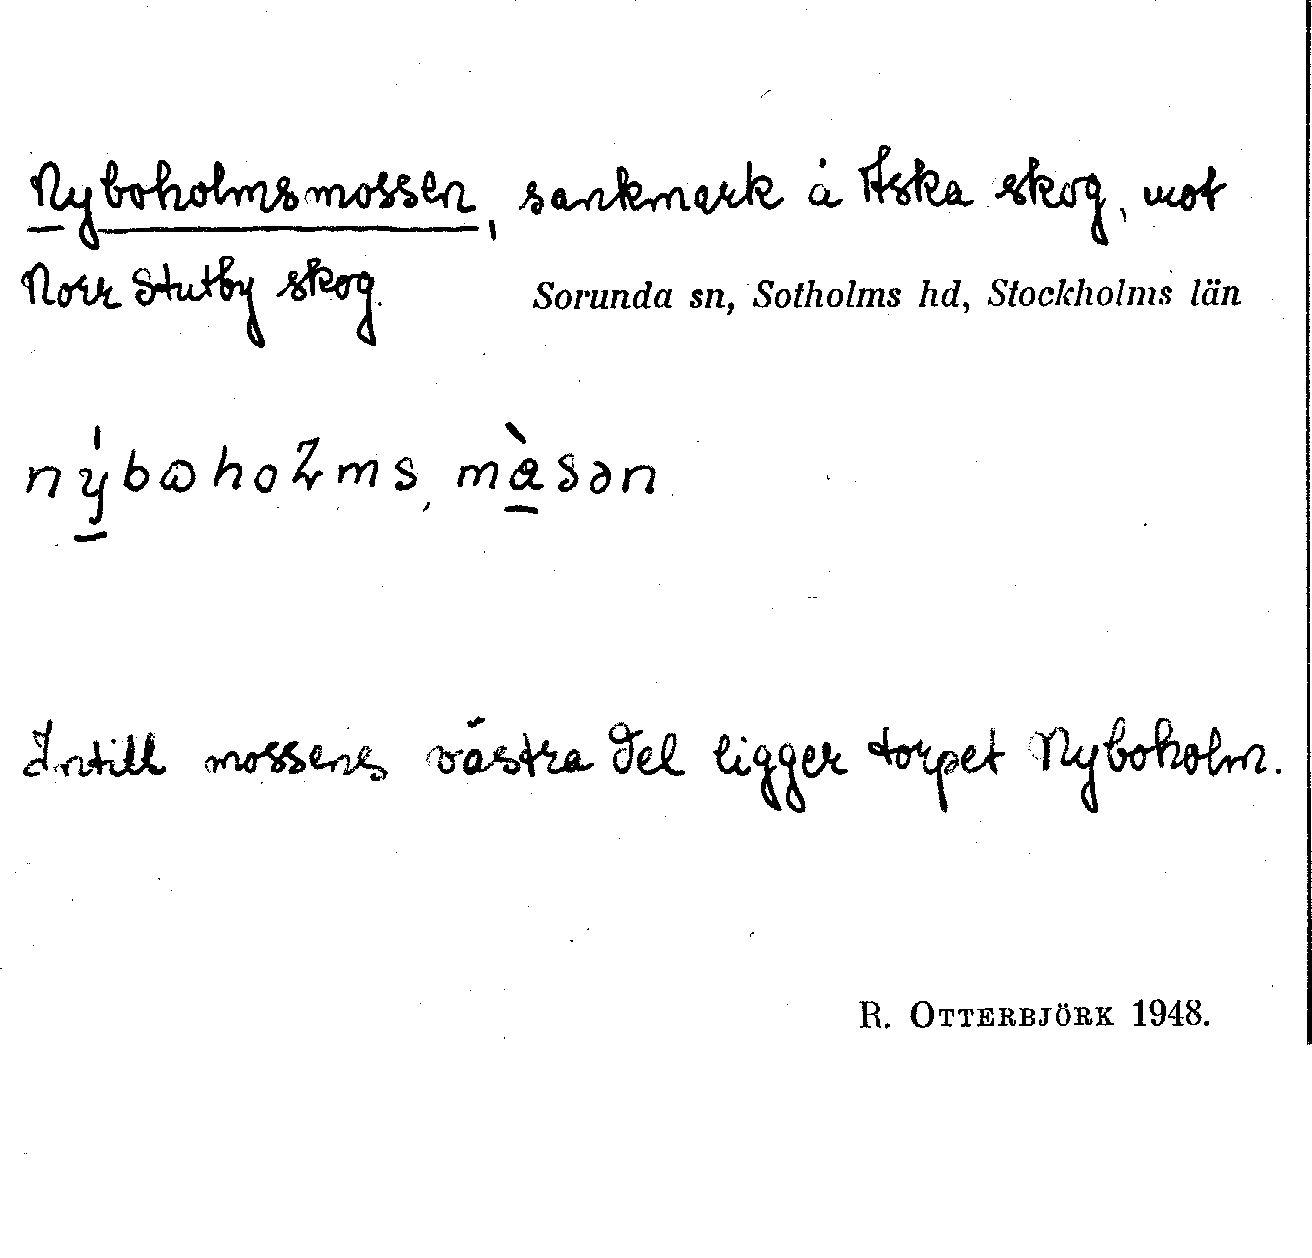 Nyboholmsmossen, sankmark å Aska skog, mot
Norr Stutby skog.
Sorunda sn, Sotholms hd, Stockholms län
Intill mossens västra del ligger torpet Nyboholm.
R. OTTERBJÖRK 1948.